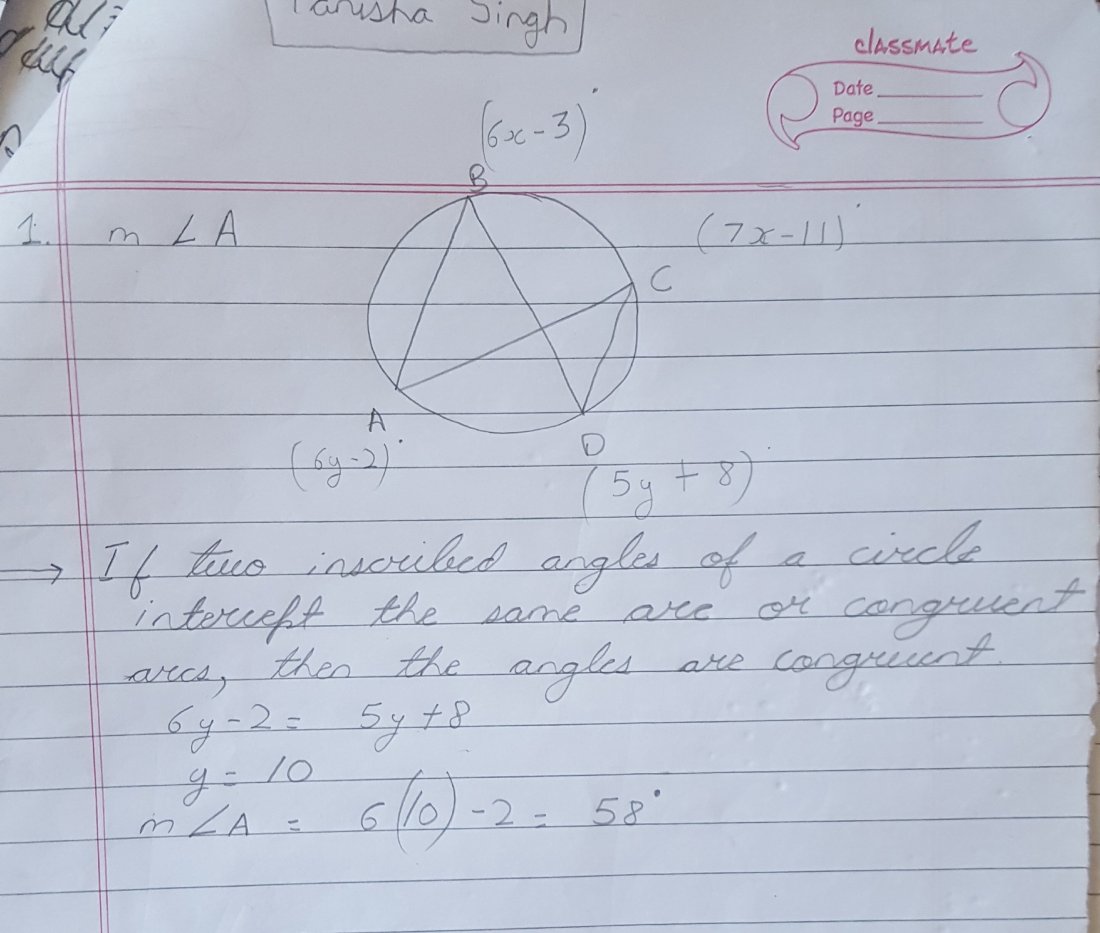 Tanisha Singh
classmate
Date
Page
(6x-3)°
B
1. m ∠A
(7x-11)°
C
A
D
(6y-2)°
(5y + 8)°
→ If two inscribed angles of a circle
intercept the same arc or congruent
arcs, then the angles are congruent.
6y-2 = 5y+8
y = 10
m ∠A = 6(10)-2 = 58°